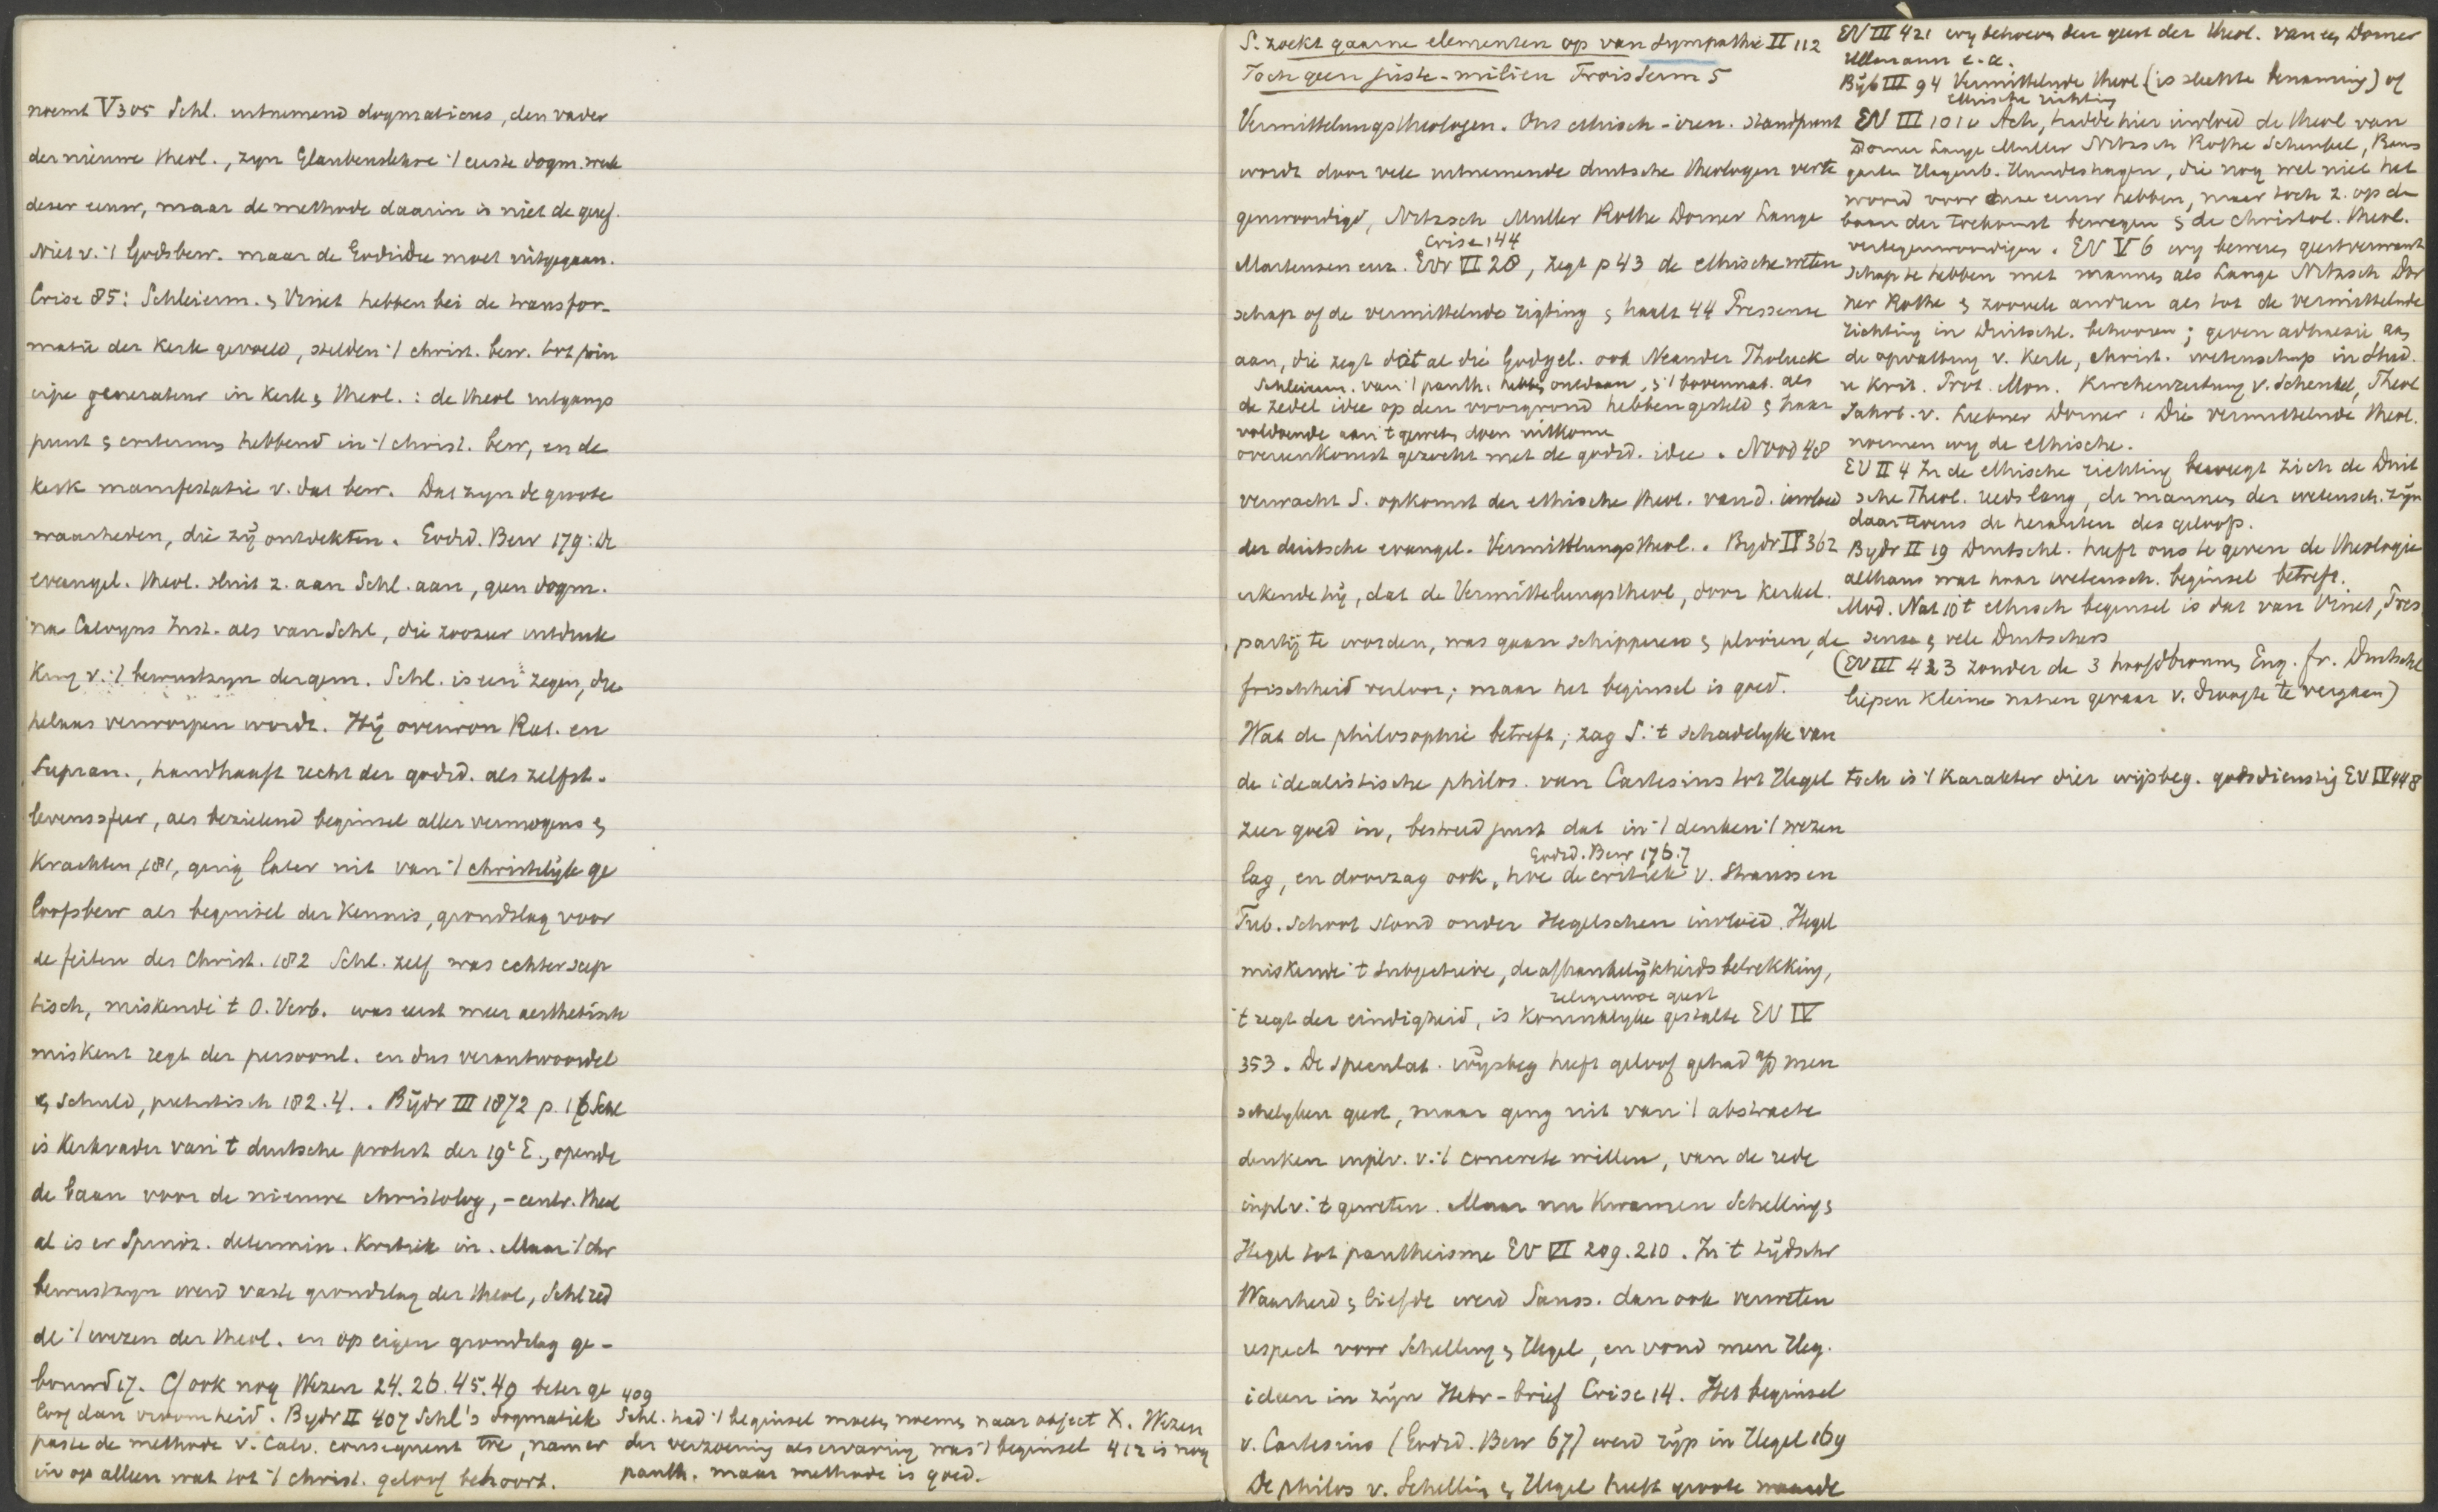 noemt V 305 Schl. uitnemend dogmaticus, den vader
der nieuwe theol., zyn Glaubenslehre 't eerste dogm. werk
dezer eeuw, maar de methode daarin is niet de geref.
Niet v. 't Godsbew. maar de Godsidee moet uitgegaan.
Crise 85: Schleierm. & Vinet hebben bei de transfor-
matie der Kerk gevoeld, stelden 't christ. bew. tot prin
cipe generateur in Kerk & theol.: de theol uitgangs
punt & criterium hebbend in 't christ. bew, en de
Kerk manifestatie v. dat bew. Dat zyn de groote
waarheden, die zij ontdekten. Godsd. Bew 179: De
evangel. theol. sluit z. aan Schl. aan, geen dogm.
na Calvyns Inst. als van Schl, die zoozeer uitdruk
King v. 't bewustzyn der gem. Schl. is een zegen, die
helaas verworpen wordt. Hij overwon Rat. en
Supran., handhaaft recht der godsd. als zelfst.
levenssfeer, als bezielend beginsel aller vermogens &
Krachten, 181, ging later uit van 't christelijk ge
loofsbew als beginsel der Kennis, grondslag voor
de feiten des Christ. 182 Schl. zelf was echter scep
tisch, miskende 't O. Verb. was eerst meer aesthetisch
miskent regt der persoonl. en dus verantwoordel
& schuld, pietistisch 182.4. . Bijdr III 1872 p. 16 Schl
is Kerkvader van 't duitsche protest der 19e E., opende
de baan voor de nieuwe christolog, - centr. theol
al is er Spinoz. determin. Kritiek in. Maar 't chr
bewustzyn werd vaste grondslag der theol, Schl red
de 't wezen der theol. en op eigen grondslag ge-
bouwd 17. Cf ook nog Wezen 24.26.45.49 beter ge
loof dan vroomheid. Bydr II 407 Schl's dogmatiek
paste de methode v. Calv. consequent toe, nam er
in op alleen wat tot 't christ. geloof behoort.
409
Schl. had 't beginsel moeten noemen naar object X. Wezen
der verzoening als ervaring was 't beginsel 412 is nog
panth. maar methode is goed.
S. zoekt gaarne elementen op van sympathie II 112
Toch geen juste-milieu Trois Serm 5
Vermittelungstheologen. Ons ethisch-iren. standpunt
wordt door vele uitnemende duitsche theologen verte
genwoordigd, Nitzsch Muller Rothe Dorner Lange
Crise 144
Martensen enz. EV VI 28, zegt p 43 de ethische weten
schap of de vermittelnde rigting & haalt 44 Pressense
aan, die zegt dat al die Godgel. ook Neander Tholuck
Schleierm. van 't panth. hebben ontdaan, & 't bovennat. als
de zedel idee op den voorgrond hebben gesteld & haar
voldoende aan 't geweten doen uitkomen
overeenkomst gezocht met de godsd. idee. Nood 48
verwacht S. opkomst der ethische theol. van d. invloed
der duitsche evangel. Vermittlungstheol. . Bydr II 362
erkende hij, dat de Vermittelungstheol, door Kerkel.
partij te worden, was gaan schipperen & plooien, de
frischheid verloor; maar het beginsel is goed.
Wat de philosophie betreft, zag S. 't schadelyke van
de idealistische philos. van Cartesius tot Hegel toch is 't Karakter dier wijsbeg. godsdienstig EV IV 448
zeer goed in, bestreed juist dat in 't denken 't wezen
Godsd. Bew 176.7
lag, en doorzag ook, hoe de critiek v. Strauss en
Tub. School stond onder Hegelschen invloed. Hegel
miskende 't subjectieve, de afhankelijkheids betrekking,
religieuse geest
't regt der eindigheid, is Koninklyke gestalte EV IV
353. De speculat. wijsbeg heeft geloof gehad op men
schelyken geest, maar ging uit van 't abstracte
denken inplv. v. 't concrete willen, van de rede
inplv. 't geweten. Maar nu Kwamen Schelling &
Hegel tot pantheisme EV VI 209.210. In 't tijdschr
Waarheid & liefde werd Sauss. dan ook verweten
respect voor Schelling & Hegel, en vond men Heg.
ideen in zijn Hebr-brief Crise 14. Het beginsel
v. Cartesius (Godsd. Bew 67) werd rijp in Hegel 169
De philos v. Schelling & Hegel heeft groote waarde
EV III 421 wy behoeven den geest der theol. van een Dorner
Ullmann e.a.
Bijb III 94 Vermittelnde theol (is slechte benaming) of
ethische richting
EV III 101v Ach, hadde hier invloed de theol van
Dorner Lange Muller Nitzsch Rothe Schenkel, Baum
garten Hagenb. Hundeshagen, die nog wel niet het
woord voor onze eeuw hebben, maar toch z. op de
baan der toekomst bewegen & de christol. theol.
vertegenwoordigen. EV V 6 wy beweren geestverwant
schap te hebben met mannen als Lange Nitzsch Dor
ner Rothe & zoovele andren als tot de vermittelnde
richting in Duitschl. behooren; geven adhaesie aan
de opvatting v. Kerk, christ. wetenschap in d Stud.
u Krit. Prot. Mon. Kirchenzeitung v. Schenkel, Theol
Jahrb. v. Liebner Dorner: Die vermittelnde theol.
noemen wy de ethische.
EV II 4 In de ethische richting beweegt zich de Duit
sche Theol. reeds lang, de mannen der wetensch. zijn
daar tevens de herauten des geloofs.
Bydr II 19 Duitschl. heeft ons te geven de theologie
althans wat haar wetensch. beginsel betreft.
Mod. Nat 10 't ethisch beginsel is dat van Vinet, Pres
sense & vele Duitschers
(EV III 423 zonder de 3 hoofdbronnen Eng. fr. Duitschl
liepen Kleine natien gevaar v. droogte te vergaan)